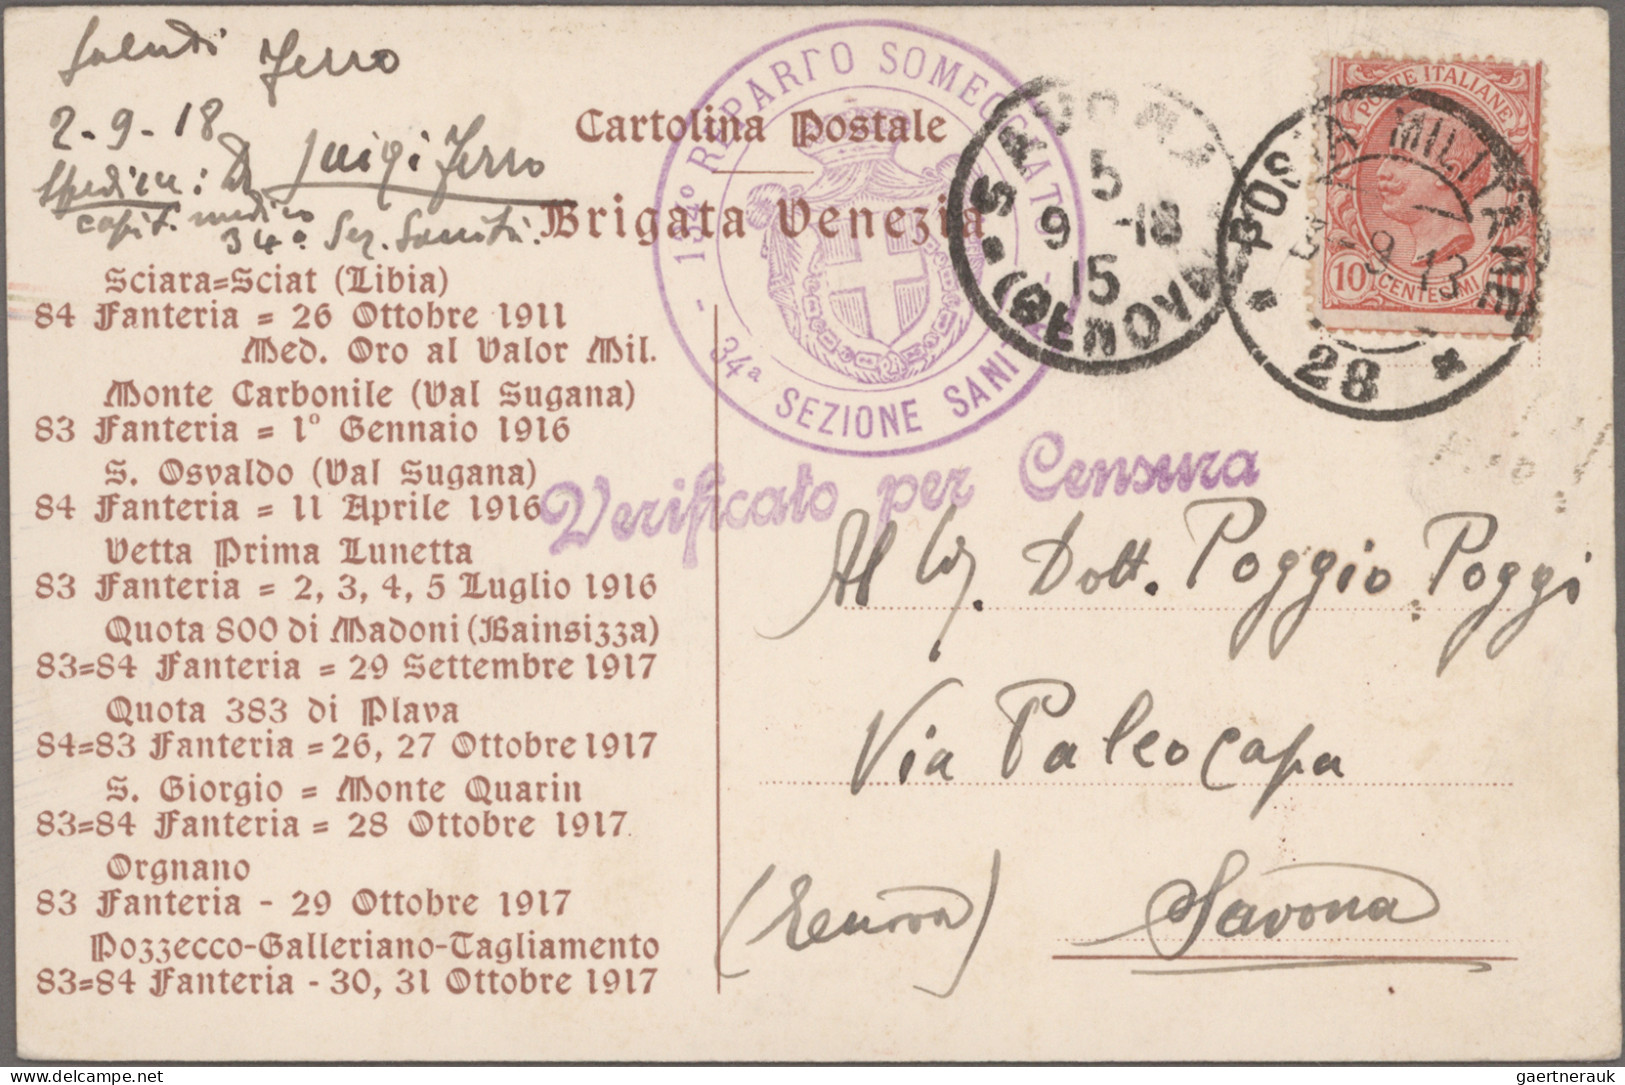 Saluti Ferro
2-9-18
Spedisce: Dr Luigi Ferro
capit. medico
34ª Sez. Sanità.
Cartolina Postale
Brigata Venezia
134º REPARTO SOMEGGIATO
34ª SEZIONE SANITÀ
SAVONA
5
9 -18
15
(GENOVA)
POSTA MILITARE
28
POSTE ITALIANE
10 CENTESIMI 10
Verificato per Censura
Sciara=Sciat (Libia)
84 Fanteria = 26 Ottobre 1911
Med. Oro al Valor Mil.
Monte Carbonile (Val Sugana)
83 Fanteria = 1º Gennaio 1916
S. Osvaldo (Val Sugana)
84 Fanteria = 11 Aprile 1916
Vetta Prima Lunetta
83 Fanteria = 2, 3, 4, 5 Luglio 1916
Quota 800 di Madoni (Bainsizza)
83=84 Fanteria = 29 Settembre 1917
Quota 383 di Plava
84=83 Fanteria = 26, 27 Ottobre 1917
S. Giorgio = Monte Quarin
83=84 Fanteria = 28 Ottobre 1917
Orgnano
83 Fanteria - 29 Ottobre 1917
Pozzecco-Galleriano-Tagliamento
83=84 Fanteria - 30, 31 Ottobre 1917
Al Sig. Dott. Poggio Poggi
Via Paleocapa
(Genova) Savona
gaertnerauk